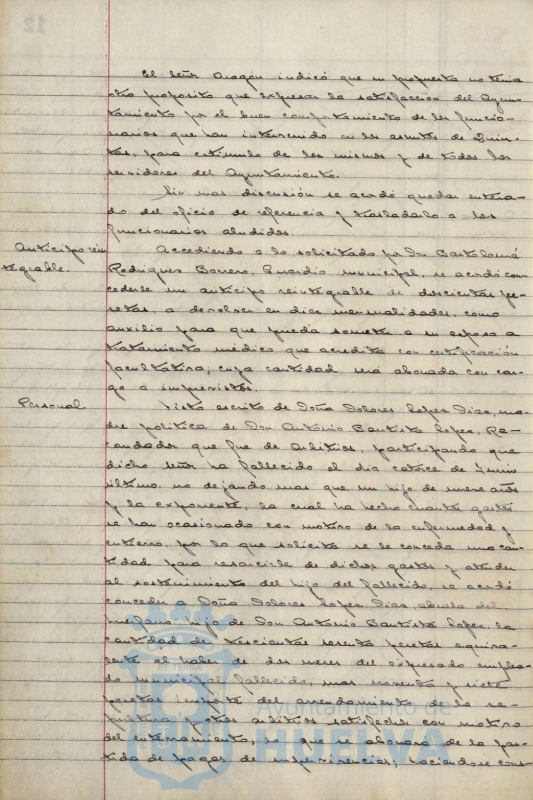 El Señor Aragón indicó que su propuesta no tenía
otro propósito que expresar la satisfacción del Ayun-
tamiento por el buen comportamiento de los funcio-
narios que han intervenido en los asuntos de Quin-
tas, para estímulo de los mismos y de todos los
servidores del Ayuntamiento.
Sin mas discusión se acordó quedar entera-
do del oficio de referencia y trasladarlo a los
funcionarios aludidos.
Anticipo rein
tegrable.
Accediendo a lo solicitado por Don Bartolomé
Rodriguez Borrero, Guardia municipal, se acordó con-
cederle un anticipo reintegrable de doscientas pe-
setas, a devolver en diez mensualidades, como
auxilio para que pueda someter a su esposa a
tratamiento médico que acredita con certificación
facultativa, cuya cantidad será abonada con car-
go a imprevistos.
Personal.
Visto escrito de Doña Dolores Lopez Dias, ma-
dre politica de Don Antonio Bautista Lopez, Re-
caudador que fue de Arbitrios, participando que
dicho señor ha fallecido el dia catorce de Junio
último, no dejando mas que un hijo de nueve años
y la exponente, la cual ha hecho cuantos gastos
se han ocasionado con motivo de la enfermedad y
entierro, por lo que solicita se le conceda una can-
tidad para resarcirle de dichos gastos y atender
al sostenimiento del hijo del fallecido, se acordó
conceder a Doña Dolores Lopez Dias, abuela del
huerfano hijo de Don Antonio Bautista Lopez, la
cantidad de trescientas sesenta pesetas equiva-
lente al haber de dos meses del expresado emplea-
do municipal fallecido, mas noventa y siete
pesetas importe del arrendamiento de la se-
pultura y otros arbitrios satisfechos con motivo
del enterramiento, lo que se abonará de la par-
tida de pagas de supervivencias, haciendose cons-
Ayuntamiento de
HUELVA